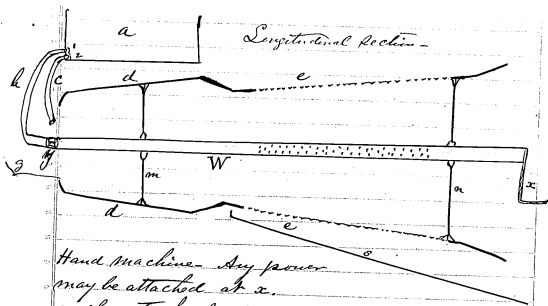 a
Longitudinal Section-
2
h
c
d
e
y
W
g
m
n
x
d
e
s
Hand machine- Any power
may be attached at x.